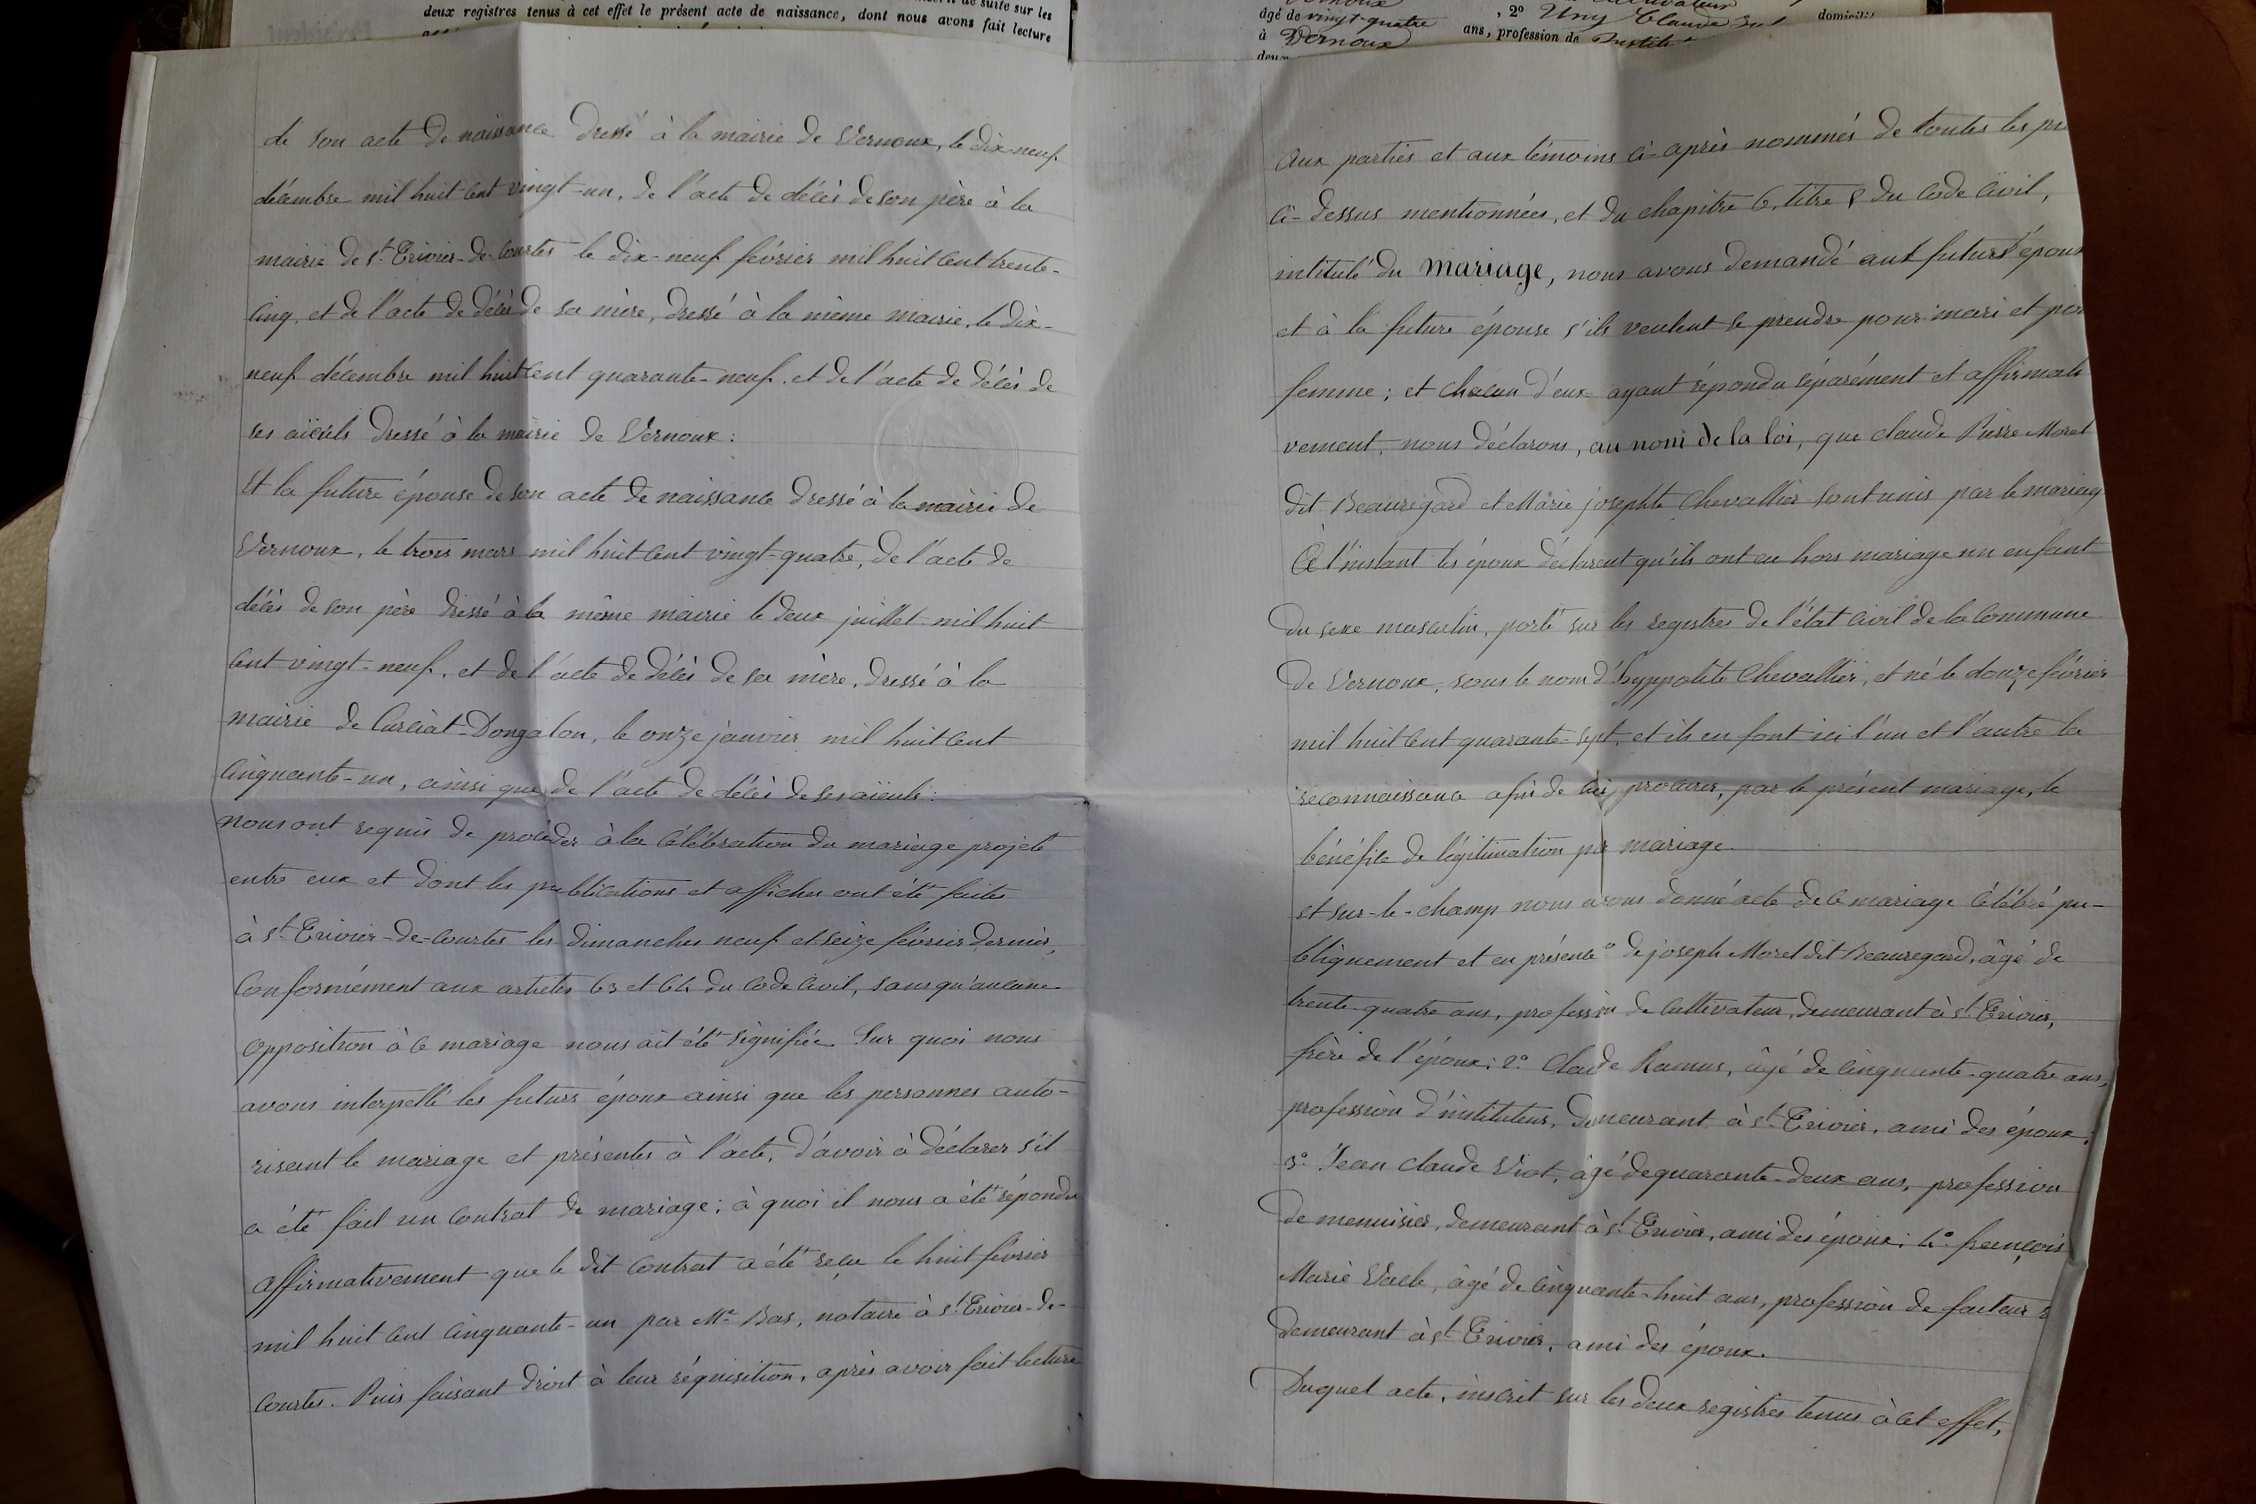 de suite sur les
deux registres tenus à cet effet le présent acte de naissance, dont nous avons fait lecture
âgé de vingt-quatre ans, profession de
à Vernoux
, 2° Uny Claude
domicilié
de son acte de naissance dressé à la mairie de Vernoux, le dix-neuf
décembre mil huit cent vingt-un, de l'acte de décès de son père à la
mairie de St Trivier-de-Courtes le dix-neuf février mil huit cent trente-
cinq, et de l'acte de décès de sa mère, dressé à la même mairie, le dix-
neuf décembre mil huit cent quarante-neuf, et de l'acte de décès de
ses aïeuls dressé à la mairie de Vernoux :
Et la future épouse de son acte de naissance dressé à la mairie de
Vernoux, le trois mars mil huit cent vingt-quatre, de l'acte de
décès de son père dressé à la même mairie le deux juillet mil huit
cent vingt-neuf, et de l'acte de décès de sa mère, dressé à la
mairie de Curciat-Dongalon, le onze janvier mil huit cent
cinquante-un, ainsi que de l'acte de décès de ses aïeuls :
nous ont requis de procéder à la célébration du mariage projeté
entre eux et dont les publications et affiches ont été faites
à St Trivier-de-Courtes les dimanches neuf et seize février dernier,
conformément aux articles 63 et 64 du code civil, sans qu'aucune
opposition à ce mariage nous ait été signifiée. Sur quoi nous
avons interpellé les futurs époux ainsi que les personnes auto-
risant le mariage et présentes à l'acte, d'avoir à déclarer s'il
a été fait un contrat de mariage ; à quoi il nous a été répondu
affirmativement que le dit contrat a été reçu le huit février
mil huit cent cinquante-un par Me Bas, notaire à St Trivier-de-
Courtes. Puis faisant droit à leur réquisition, après avoir fait lecture
aux parties et aux témoins ci-après nommés de toutes les
ci-dessus mentionnées, et du chapitre 6, titre 5 du code civil,
intitulé du mariage, nous avons demandé aux futurs époux
et à la future épouse s'ils veulent se prendre pour mari et pour
femme ; et chacun d'eux ayant répondu séparément et affirmati
vement, nous déclarons, au nom de la loi, que claude Pierre Morel
dit Beauregard et Marie josephte Chevallier sont unis par le mariage
à l'instant les époux déclarent qu'ils ont eu hors mariage un enfant
du sexe masculin, porté sur les registres de l'état civil de la commune
de Vernoux, sous le nom d'hyppolite Chevallier, et né le douze février
mil huit cent quarante-sept, et ils en font ici l'un et l'autre la
reconnaissance afin de lui procurer, par le présent mariage, le
bénéfice de légitimation par mariage.
et sur-le-champ nous avons donné acte de ce mariage célébré pu-
bliquement et en présence de joseph Morel dit Beauregard, âgé de
trente-quatre ans, profession de cultivateur, demeurant à St Trivier,
frère de l'époux ; 2° Claude Ramus, âgé de cinquante-quatre ans,
profession d'instituteur, demeurant à St Trivier, ami des époux ;
3° Jean Claude Viot, âgé de quarante-deux ans, profession
de menuisier, demeurant à St Trivier, ami des époux ; 4° françois
Marie âgé de cinquante-huit ans, profession de facteur
demeurant à St Trivier, ami des époux.
Duquel acte, inscrit sur les deux registres tenus à cet effet,